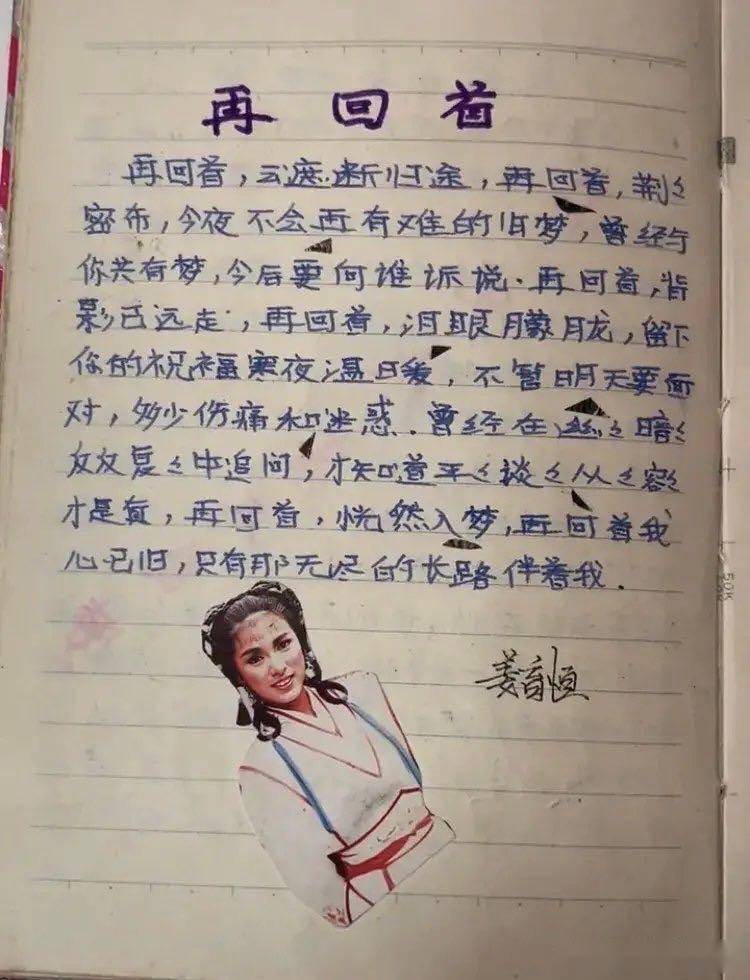 再回首
再回首,云遮断归途,再回首,荆々
密布,今夜不会再有难的旧梦,曾经与
你共有梦,今后要向谁诉说.再回首,背
影已远走,再回首,泪眼朦胧,留下
你的祝福寒夜温暖,不暂明天要面
对,多少伤痛和迷惑.曾经在丝々暗々
反反复々中追问,才知道平々谈々从々容々
才是真,再回首,恍然入梦,再回首我
心已旧,只有那无尽的长路伴着我.
姜育恒
50K